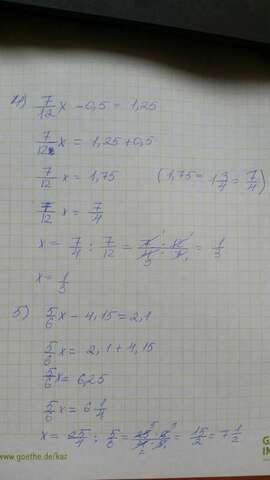 4) 7/12 x - 0,5 = 1,25
7/12 x = 1,25 + 0,5
7/12 x = 1,75 (1,75 = 1 3/4 = 7/4)
7/12 x = 7/4
x = 7/4 : 7/12 = = 1/3
x = 1/3
5) 5/6 x - 4,15 = 2,1
5/6 x = 2,1 + 4,15
5/6 x = 6,25
5/6 x = 6 1/4
x = 25/4 : 5/6 = = 15/2 = 7 1/2
www.goethe.de/kaz